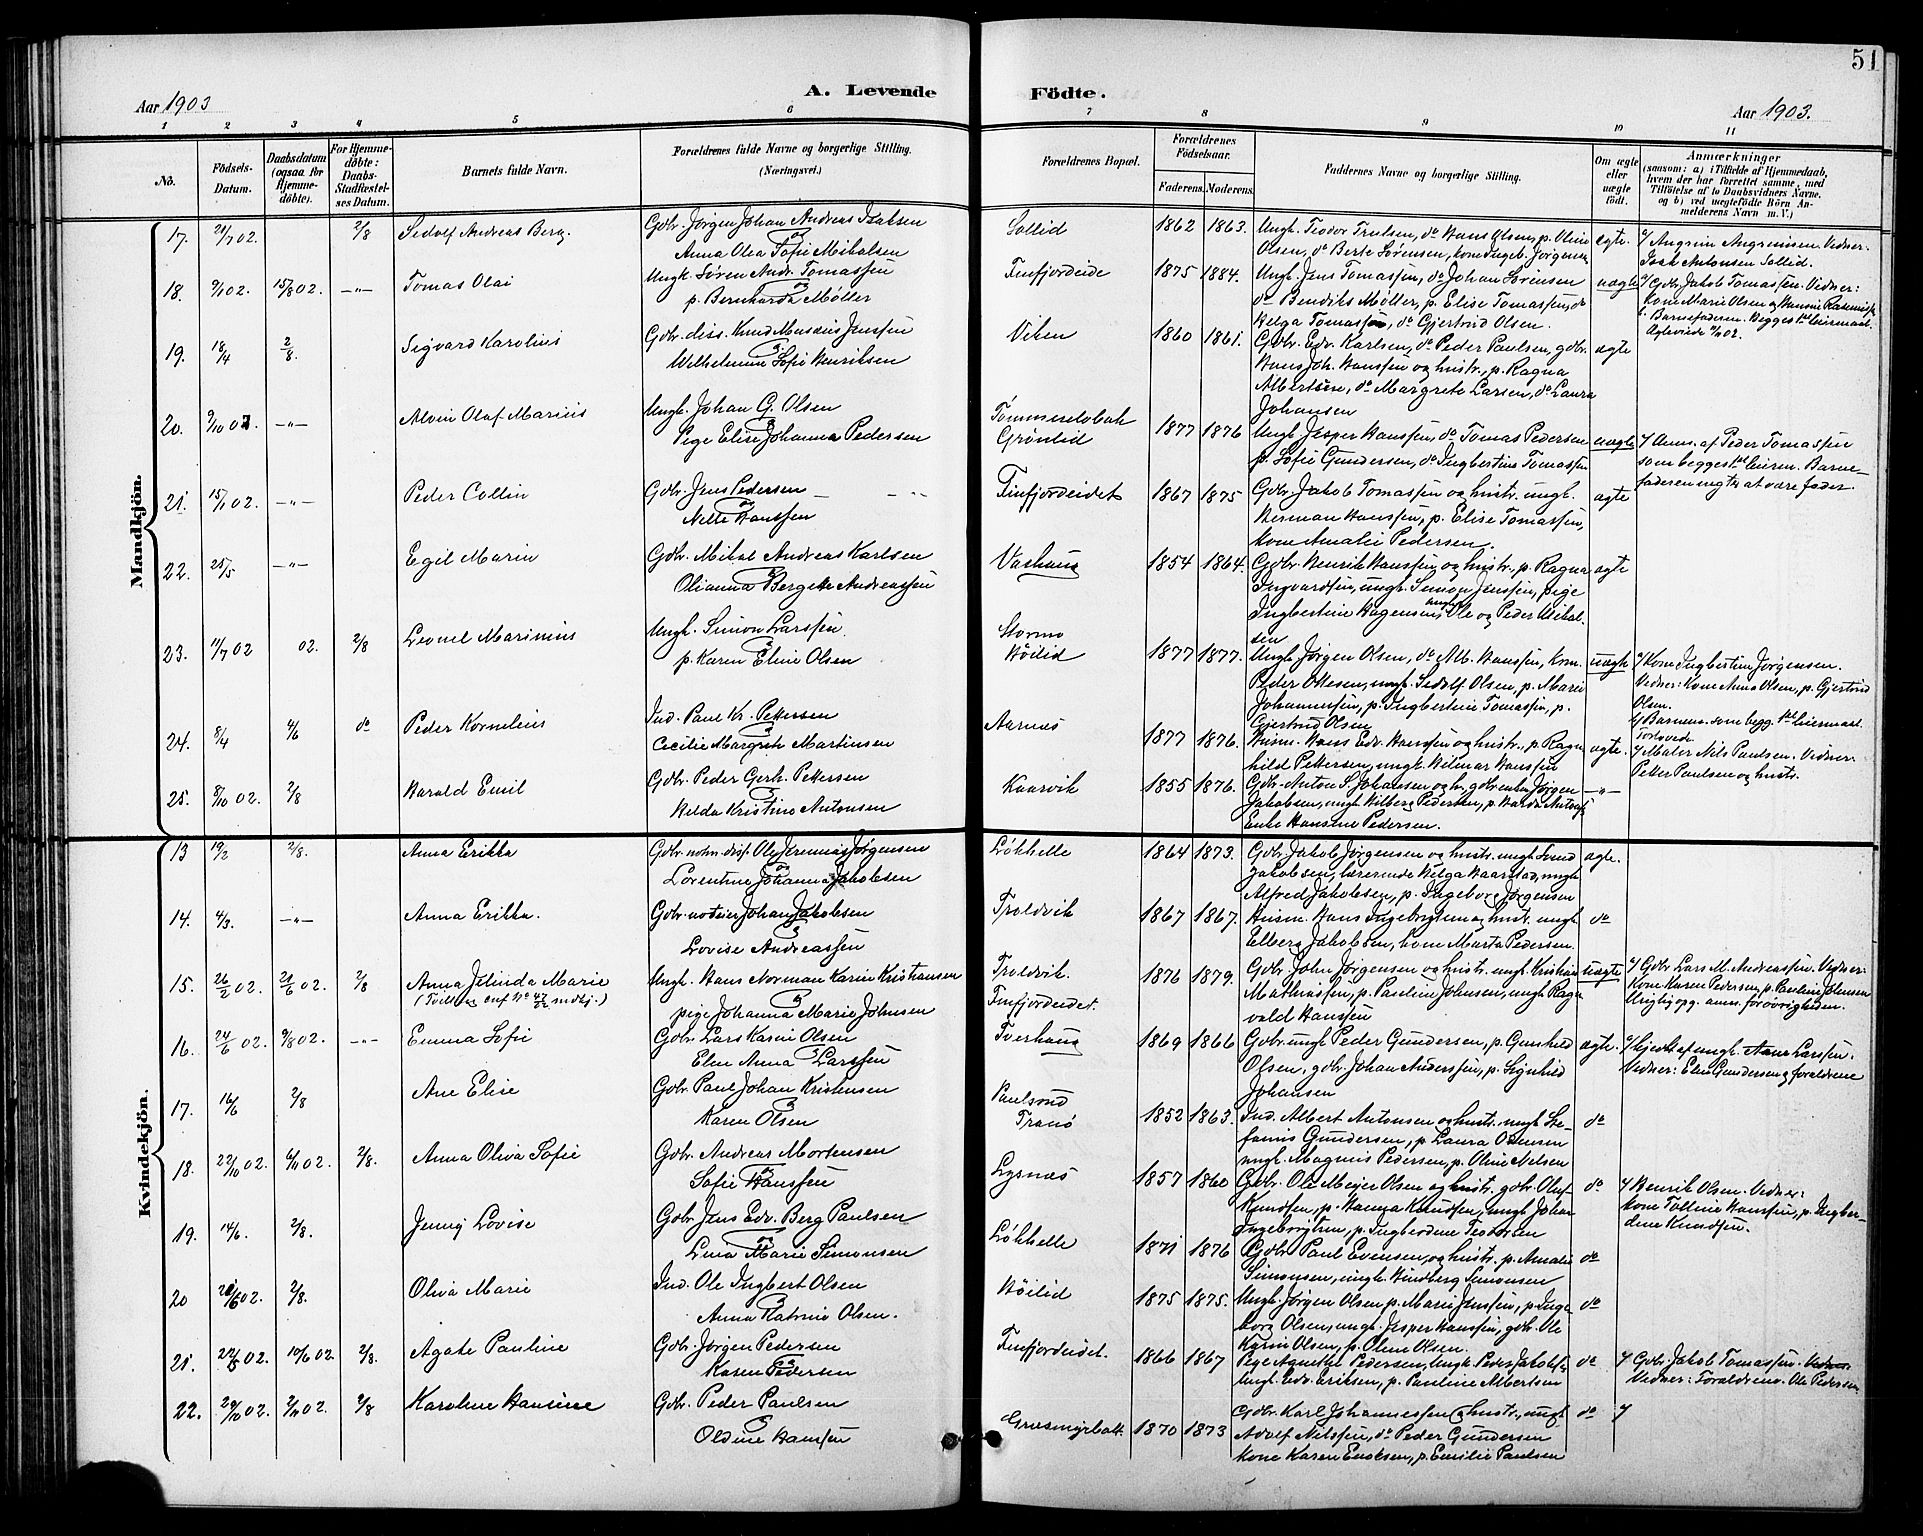 51
Aar 1903
A. Levende
Födte.
Aar 1903.
1 2 3 4 5 6 7 8 9 10 11
No.
Födsels-
Datum.
Daabsdatum
(ogsaa for
Hjemme-
döbte).
For Hjemme-
döbte:
Daabs-
Stadfæstel-
ses Datum.
Barnets fulde Navn.
Forældrenes fulde Navne og borgerlige Stilling.
(Næringsvei.)
Forældrenes Bopæl.
Forældrenes
Födselsaar.
Faderens.
Moderens.
Faddernes Navne og borgerlige Stilling.
Om ægte
eller
uægte
födt.
Anmærkninger
(saasom: a) i Tilfælde af Hjemmedaab,
hvem der har forrettet samme, med
Tilföielse af to Daabsvidners Navne,
og b) ved uegtefödte Börn An-
melderens Navn m. V.)
Mandkjön.
17. 21/7 02. 2/8 Sedolf Andreas Berg. Gdbr. Jørgen Johan Andreas Isaksen
og
Anna Olea Sofie Mikalsen
Sollid 1862 1863. Ungk. Teodor Trulsen, do Hans Olsen, p. Oline
Olsen, do Berte Sørensen, kone Ingeb. Jørgensen
egte.
Angrim Angrimsen. Vidner:
Isak Antonsen Sollid.
18. 9/1 02. 15/8 02. -"- Tomas Olai Ungk. Søren Andr. Tomassen
og
p. Bernharda Møller
Finfjordeide 1875 1884. Ungk. Jens Tomassen, do Johan Sørensen
do Bendiks Møller, p. Elise Tomassen, do
Helga Tomassen, do Gjertrud Olsen.
uægte
Gdbr. Jakob Tomassen. Vidner:
Kone Marie Olsen og Hansine Rasmussen
Barnefaderen. Begges 1ste Leiermaal.
19. 18/4 2/8 Sigvard Karolius Gdbr. diss. Knud Musæus Jenssen
og
Wilhelmine Sofie Henriksen
Viken 1860 1861. Gdbr. Edv. Karlsen, do Peder Paulsen, gdbr.
Hans Joh. Hanssen og hustr., p. Ragna
Albertsen, do Margrete Larsen, do Laura
Johansen
ægte
20. 9/10 -"- Alvin Olaf Marius Ungk. Johan G. Olsen
og
Pige Elise Johanna Pedersen
Tømmerelvbak
Grønlid
1877 1876 Ungk. Jesper Hanssen, do Tomas Pedersen
p. Sofie Gundersen, do Ingbertine Tomassen
uægte
Anm. af Peder Tomassen
som begges 1ste Leierm. Barne-
faderen negter at være fader.
21. 15/1 02. -"- Peder Collin Gdbr. Jens Pedersen
og
Nelle Hanssen
Finfjordeidet 1867 1875 Gdbr. Jakob Tomassen og hustr. ungk.
Herman Hanssen, p. Elise Tomassen,
kone Amalie Pedersen.
ægte
22. 25/5 -"- Egil Marin Gdbr. Mikal Andreas Karlsen
og
Olianna Bergitte Andreassen
Vashaug 1854 1864. Gdbr. Henrik Hanssen og hustr., p. Ragna
Ingvardsen, ungk. Simon Jenssen, pige
Ingbertine Hagensen, Ole og Peder Mikal-
sen
ægte
23. 11/7 02 02. 2/8 Leonel Marinius Ungk. Simon Larssen
og
p. Karen Eline Olsen
Stormo
Høilid
1877 1877. Ungk. Jørgen Olsen, do Alb. Hanssen, Kom.
Peder Ottesen, ungk. Sedolf Olsen, p. Marie
Johannessen, p. Ingbertine Tomassen, p.
Gjertrud Olsen
uægte
Kone Ingbertine Jørgensen.
Vidner: Kone Anna Olsen, p. Gjertrud
Olsen.
Barnem. som begg. 1ste Leiermaal.
24. 8/4 4/6 do Peder Kornelius Ind. Paul Kr. Pettersen
og
Cecilie Margrete Martinsen
Aarnæs 1877 1876. Husm. Hans Edv. Hanssen og hustr., p. Ragn
hild Pettersen, ungk. Hilmar Hanssen
ægte.
Maler Nils Paulsen. Vidner:
Petter Paulsen og hustr.
25. 8/10 02. 2/8 Harald Emil Gdbr. Peder Gerh. Pettersen
og
Hilda Kristine Antonsen
Kaarvik 1855 1876. Gdbr. Anton S. Johansen og h. gdbr. enkem. Jørgen
Jakobsen, ungk. Hilberg Pedersen, p.
Enke Hansine Pedersen.
-"-
Kvindekjön.
13 19/2 2/8. Anna Erikka Gdbr. Ole Jeremias Jørgensen
og
Lorentine Johanna Jakobsen
Løkhelle 1864 1873. Gdbr. Jakob Jørgensen og hustr. ungk.
Jakobsen, lærerinde Helga Haarstad, ungk.
Alfred Jakobsen, p. Ingeborg Jørgensen
ægte.
14. 4/3. -"- Anna Erikka. Gdbr. Johan Jakobsen
og
Lovise Andreassen
Troldvik 1867 1867. Husm. Hans Ingebrigtsen og hustr. ungk.
Elberg Jakobsen, kone Marta Pedersen.
do
15. 26/2 02. 29/6 02. 2/8 Anna Jelinda Marie
Ungk. Hans Norman Karin Kristiansen
og
pige Johanna Marie Johnsen
Troldvik.
Finfjordeidet.
1876 1879. Gdbr. John Jørgensen og hustr. ungk. Kristian
Mathiassen, p. Pauline Johnsen, ungk. Ragn
vald Hanssen
uægte
Gdbr. Lars M. Andreassen. Vidner:
Kone Karen Pedersen, p. Pauline Johnsen
Urigtig opg. anm. for øvrigheden.
16. 24/6 02. 9/8 02. -"- Emma Sofie Gdbr. Lars Kasin Olsen
og
Elen Anna Larssen
Tverhaug 1869 1866 Gdbr. ungk. Peder Gundersen, p. Gunhild
Olsen, gdbr. Johan Anderssen, p. Signhild
Johansen
ægte.
Hjemd. af ungk. Arne Larssen.
Vidner: Elen Gundersen og forældrene
17. 16/6 2/8 Ane Elise Gdbr. Paul Johan Kristensen
og
Karen Olsen
Paulsund
Tranø
1852 1863. Ind. Albert Antonsen og hustr. ungk. Ste-
fanus Gundersen, p. Laura Ottensen
ungk. Magnus Pedersen, p. Oline Nilsen
do
18. 22/10 02. 6/11 02. 2/8. Anna Oliva Sofie Gdbr. Andreas Mortensen
og
Sofie Hanssen
Lysnæs 1857 1860 Gdbr. Ole Meyer Olsen og hustr. gdbr. Oluf
Knudsen, p. Hanna Knudsen, ungk. Johan
Ingebrigtsen, p. Ingberdine Teodorsen
do
Henrik Olsen. Vidner:
Kone Tolline Hanssen, p. Ingber-
dine Knudsen.
19. 14/6 2/8. Jenny Lovise Gdbr. Jens Edv. Berg Paulsen
og
Lina Marie Simonsen
Løkhelle 1871 1876 Gdbr. Paul Evensen, og hustr. p. Amalie
Simonsen, ungk. Hindberg Simonsen
do
20 28/6 02. 2/8. Oliva Marie Ind. Ole Ingbert Olsen
Anna Katrine Olsen.
Høilid 1875 1875. Ungk. Jørgen Olsen p. Marie Jenssen, p. Inge
borg Olsen, ungk. Jesper Hanssen, gdbr. Ole
Karin Olsen, p. Oline Olsen.
do
21. 22/5 02. 10/6 02. 2/8. Agate Pauline Gdbr. Jørgen Pedersen
og
Karen Pedersen
Finfjordeidet. 1866 1867 Pige Agnethe Pedersen, Ungk. Peder Jakobsen
Ungk. Edv. Eriksen, p. Pauline Albertsen
do
Gdbr. Jakob Tomassen.
Vidner: Forældrene. Ole Pedersen
22. 29/10 02. 2/11 02. 2/8 Karoline Hansine Gdbr. Peder Paulsen
og
Oldine Hanssen
Græsmyrbak. 1870 1873 Gdbr. Karl Johannessen og hustr., ungk.
Adolf Nilssen, do Peder Gundersen
Kone Karen Enoksen, p. Emilie Paulsen
do